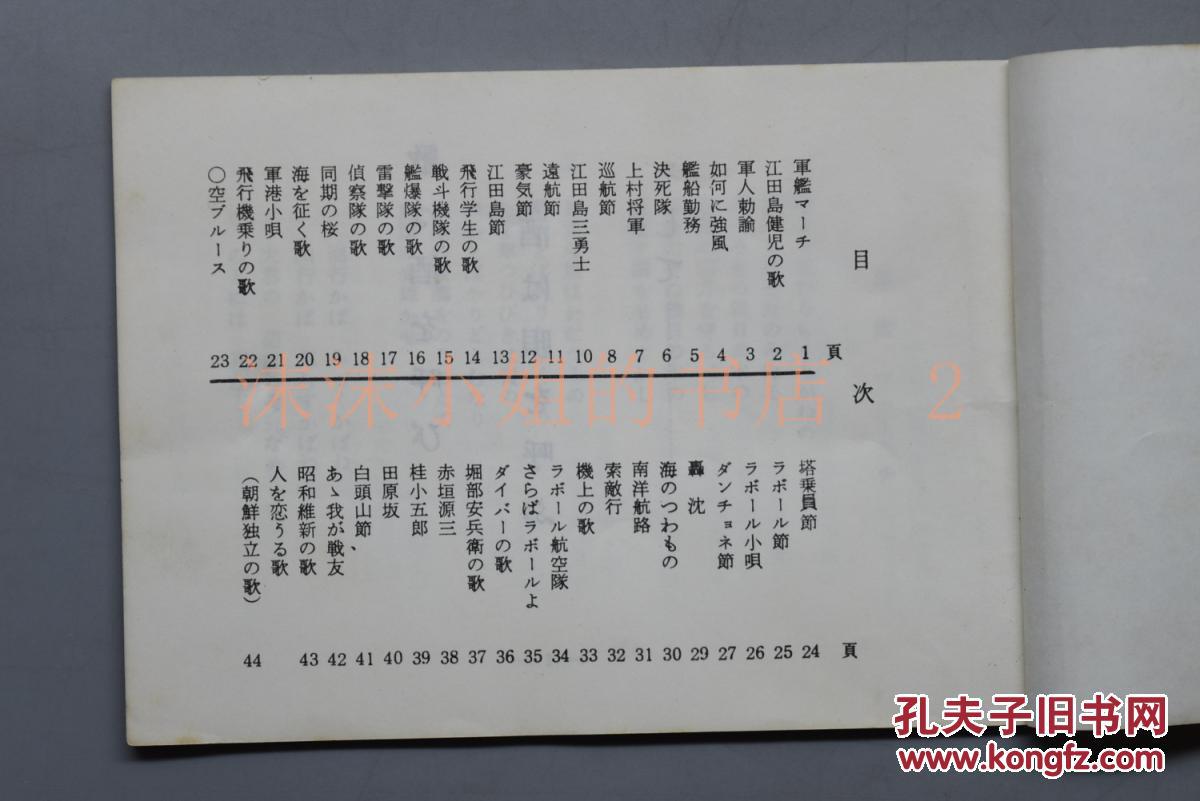 目　次
頁
軍艦マーチ 1
江田島健児の歌 2
軍人勅諭 3
如何に強風 4
艦船勤務 5
決死隊 6
上村将軍 7
巡航節 8
江田島三勇士 10
遠航節 11
豪気節 12
江田島節 13
飛行学生の歌 14
戦斗機隊の歌 15
艦爆隊の歌 16
雷撃隊の歌 17
偵察隊の歌 18
同期の桜 19
海を征く歌 20
軍港小唄 21
飛行機乗りの歌 22
〇空ブルース 23
頁
塔乗員節 24
ラボール節 25
ラボール小唄 26
ダンチョネ節 27
轟　沈 29
海のつわもの 30
南洋航路 31
索敵行 32
機上の歌 33
ラボール航空隊 34
さらばラボールよ 35
ダイバーの歌 36
堀部安兵衛の歌 37
赤垣源三 38
桂小五郎 39
田原坂 40
白頭山節、 41
あゝ我が戦友 42
昭和維新の歌 43
人を恋うる歌
（朝鮮独立の歌） 44
沫沫小姐的书店 2
孔夫子旧书网
www.kongfz.com